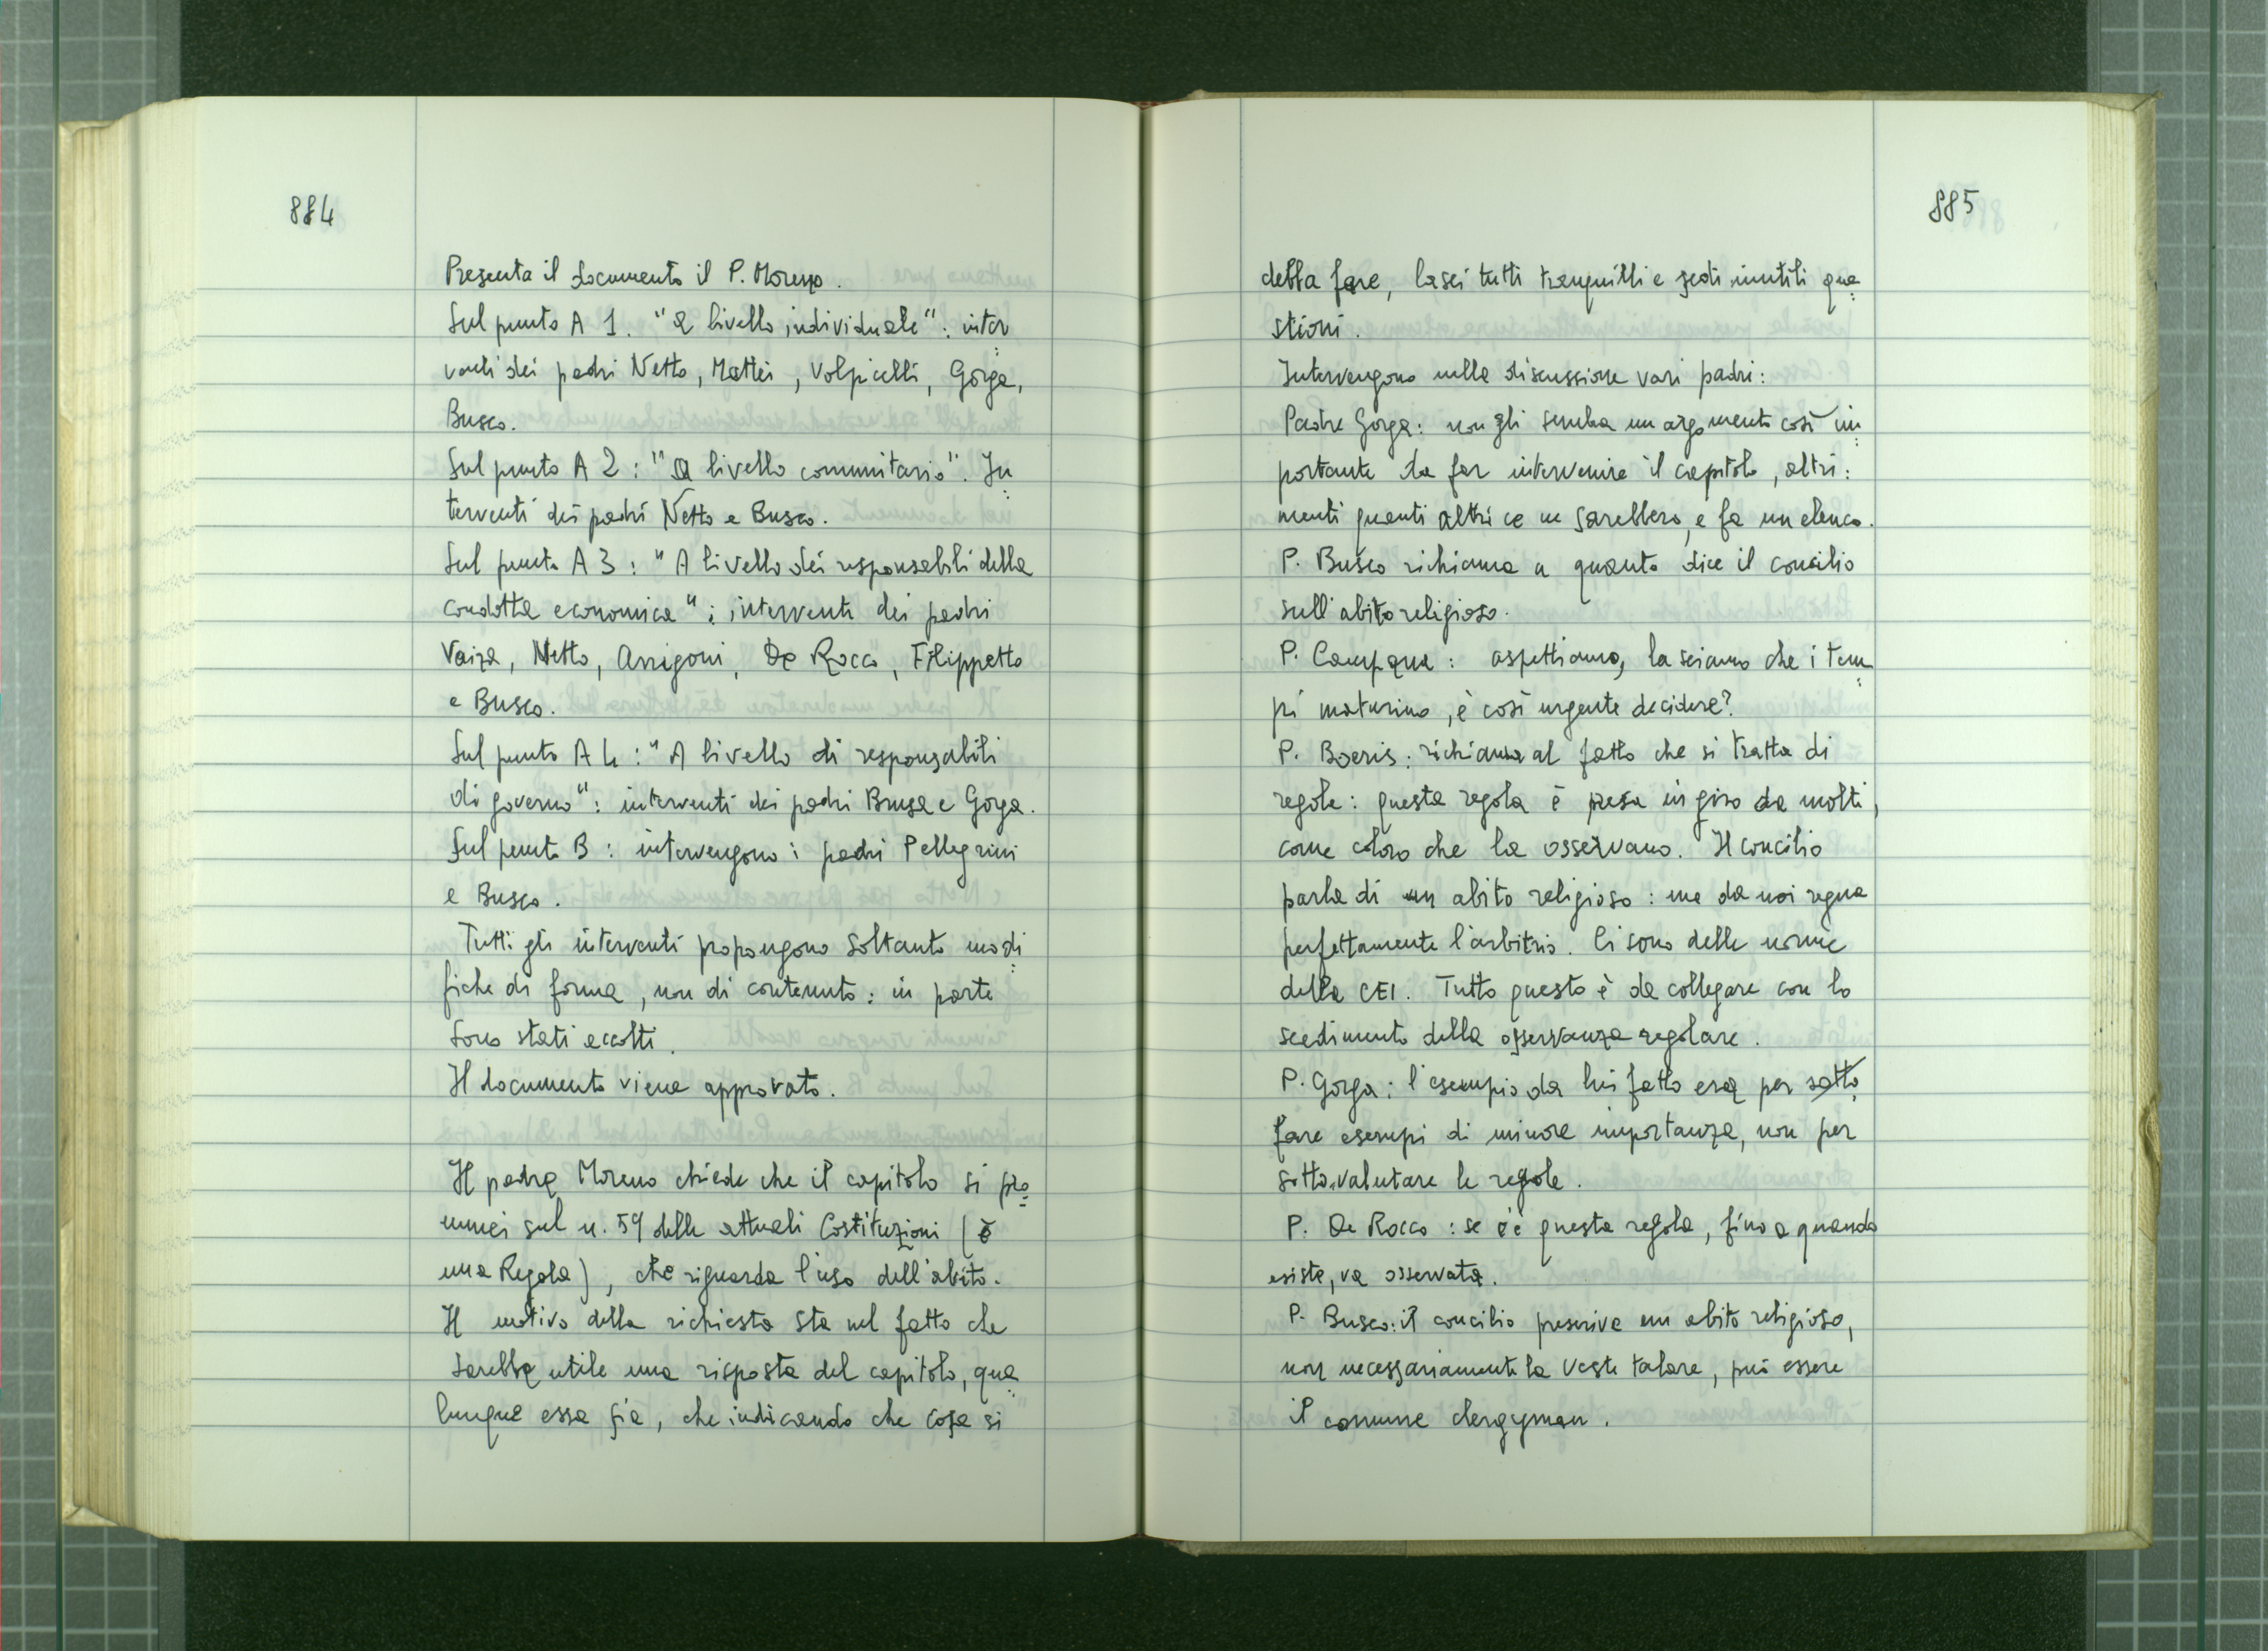 884
Presenta il documento il P. Moreno.
Sul punto A 1. "a livello individuale": inter
venti dei padri Netto, Mattei, Volpicelli, Gorga,
Busco.
Sul punto A 2: "a livello comunitario". In
terventi dei padri Netto e Busco.
Sul punto A 3: "A livello dei responsabili della
condotta economica": interventi dei padri
Vaiza, Netto, Arrigoni, De Rocco, Filippetto
e Busco.
Sul punto A 4: "A livello di responsabili
di governo": interventi dei padri Brusa e Gorga.
Sul punto B: intervengono i padri Pellegrini
e Busco.
Tutti gli interventi propongono soltanto modi
fiche di forma, non di contenuto: in parte
sono stati accolti.
Il documento viene approvato.
Il padre Moreno chiede che il capitolo si pro
nunci sul n. 59 delle attuali Costituzioni (è
una Regola), che riguarda l'uso dell'abito.
Il motivo della richiesta sta nel fatto che
sarebbe utile una risposta del capitolo, qua
lunque essa sia, che indicando che cosa si
885
debba fare, lasci tutti tranquilli e sedi inutili que
stioni.
Intervengono nella discussione vari padri:
Padre Gorga: non gli sembra un argomento così im
portante da far intervenire il capitolo, altri:
menti quanti altri ce ne sarebbero, e fa un elenco.
P. Busco richiama a quanto dice il concilio
sull'abito religioso.
P. Campana: aspettiamo, lasciamo che i tem
pi maturino, è così urgente decidere?
P. Boeris: richiama al fatto che si tratta di
regole: questa regola è presa in giro da molti,
come coloro che la osservano. Il concilio
parla di un abito religioso: ma da noi regna
perfettamente l'arbitrio. Ci sono delle norme
della CEI. Tutto questo è da collegare con lo
scadimento della osservanza regolare.
P. Gorga: l'esempio da lui fatto era per sotto
fare esempi di minore importanza, non per
sottovalutare le regole.
P. De Rocco: se c'è questa regola, fino a quando
esiste, va osservata.
P. Busco: il concilio prescrive un abito religioso,
non necessariamente la veste talare, può essere
il comune clergyman.